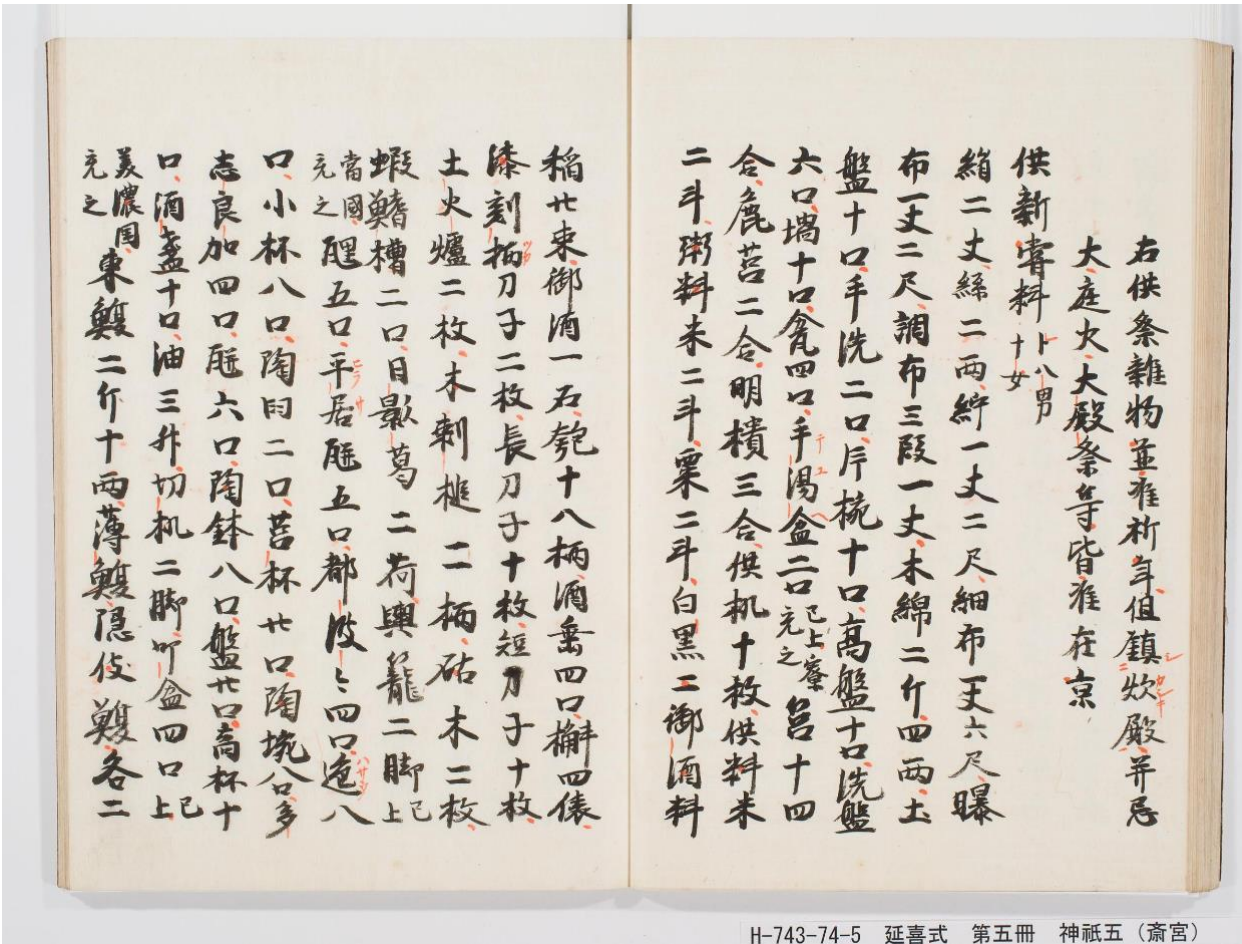 右供祭雜物並准祈年但鎮炊殿并忌
大庭火大殿祭等皆准在京
供新嘗料卜八男十女
絹二丈絲二両紵一丈二尺細布一丈六尺曝
布一丈二尺調布三段一丈木綿二斤四両土
盤十口手洗二口片椀十口高盤十口洗盤
六口堝十口瓫四口手湯盆二口已上寮充之筥十四
合麁筥二合明樻三合供机十枚供料米
二斗粥料米二斗粟二斗白黒二御酒料
稲廾束御酒一石匏十八柄酒垂四口槲四俵
漆刻柄刀子二枚長刀子十枚短刀子十枚
土火爐二枚木剌椎二柄砧木二枚
蝦鰭槽二口日影葛二荷輿籠二脚已上
當國充之𤭖五口平居瓼五口都波々四口匜八
口小杯八口陶臼二口筥杯廾口陶埦八口多
志良加四口瓼六口陶鉢八口盤廾口高杯十
口酒盞十口油三升切机二脚叩盆四口已上
美濃国充之東鰒二斤十両薄鰒隠伎鰒各二
H-743-74-5 延喜式 第五冊 神祇五(斎宮)